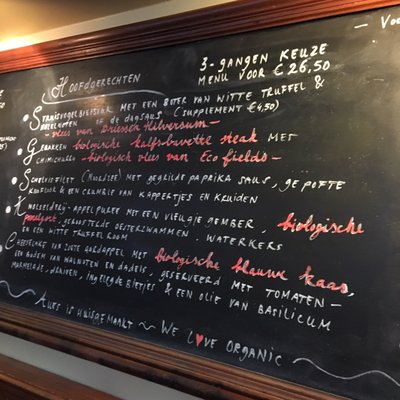 3-GANGEN KEUZE
MENU VOOR € 26,50
HOOFDGERECHTEN
STRUISVOGELBIEFSTUK MET EEN BOTER VAN WITTE TRUFFEL &
OF DE DAGSAUS (SUPPLEMENT € 4,50)
- vlees van Driessen Hilversum -
GEBAKKEN biologische kalfs-bavette steak MET
CHIMICHURRI - biologisch vlees van Ecofields -
(NOORDZEE) MET GEGRILDE PAPRIKA SAUS, GEPOFTE
KNOFLOOK & EEN CRUMBLE VAN KAPPERTJES EN KRUIDEN
KNOLSELDERIJ-APPEL PUREE MET EEN VLEUGJE GEMBER, biologische
GEROOSTERDE OESTERZWAMMEN, WATERKERS
EN EEN WITTE TRUFFEL ROOM
CHEESECAKE VAN ZOETE AARDAPPEL MET biologische blauwe kaas,
EEN BODEM VAN WALNOTEN EN DADELS, GESERVEERD MET TOMATEN-
MARMELADE, DRUIVEN, INGELEGDE BIETJES & EEN OLIE VAN BASILICUM
~ ALLES IS HUISGEMAAKT ~ WE LOVE ORGANIC ~